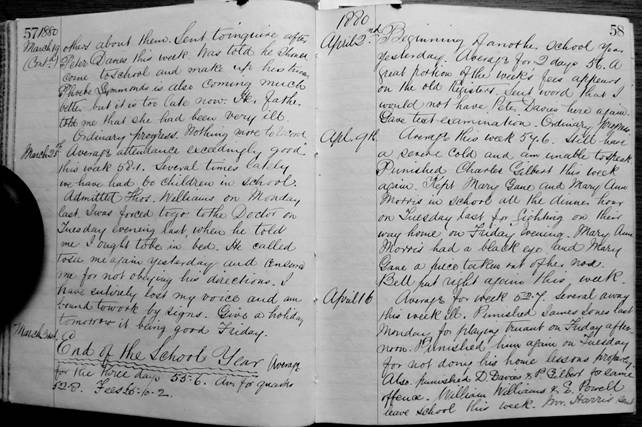 57 1880
March 19
(Cont.)
others about them. Sent to inquire after
Peter Davies this week. Was told he should
come to school and make up his time.
Phoebe Symmonds is also coming much
better but it is too late now. Her father
told me that she had been very ill.
Ordinary progress. Nothing more to record
March 25th Average attendance exceedingly good
this week 58.1. Several times lately
we have had 60 children in school.
Admitted Thos. Williams on Monday
last. I was forced to go to the Doctor on
Tuesday evening last, when he told
me I ought to be in bed. He called
to see me again yesterday and
me for not obeying his directions. I
have entirely lost my voice and am
bound to work by signs. Give a holiday
tomorrow it being Good Friday.
March
End of the School Year Average
for the three days 55.6. Av. for quarter
52.8. Fees
1880 58
April 2nd Beginning of another school year
yesterday. Average for 2 days 56. A
great portion of the week's fees appears
on the old Registers. Sent word that I
would not have Peter Davies here again.
Gave test examination. Ordinary progress
Apl. 9th Average this week 57.6. Still have
a severe cold and am unable to speak
Punished Charles Gilbert this week
again. Kept Mary Gane and Mary Ann
Morris in school all the dinner hour
on Tuesday last for fighting on their
way home on Friday evening. Mary Ann
Morris had a black eye and Mary
Gane a piece taken out of her nose.
Bell put right again this week.
April 16 Average for week 52.7. Several away
this week ill. Punished James Jones last
Monday for playing truant on Friday after
noon. Punished him again on Tuesday
for not doing his home lessons properly.
Also punished D. Davies & P. Gilbert for same
offence. William Williams & E. Powell
leave school this week. Mr. Harris